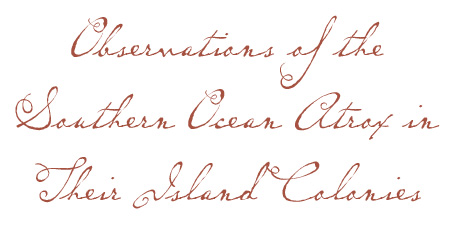 Observations of the
Southern Ocean Atrox in
Their Island Colonies